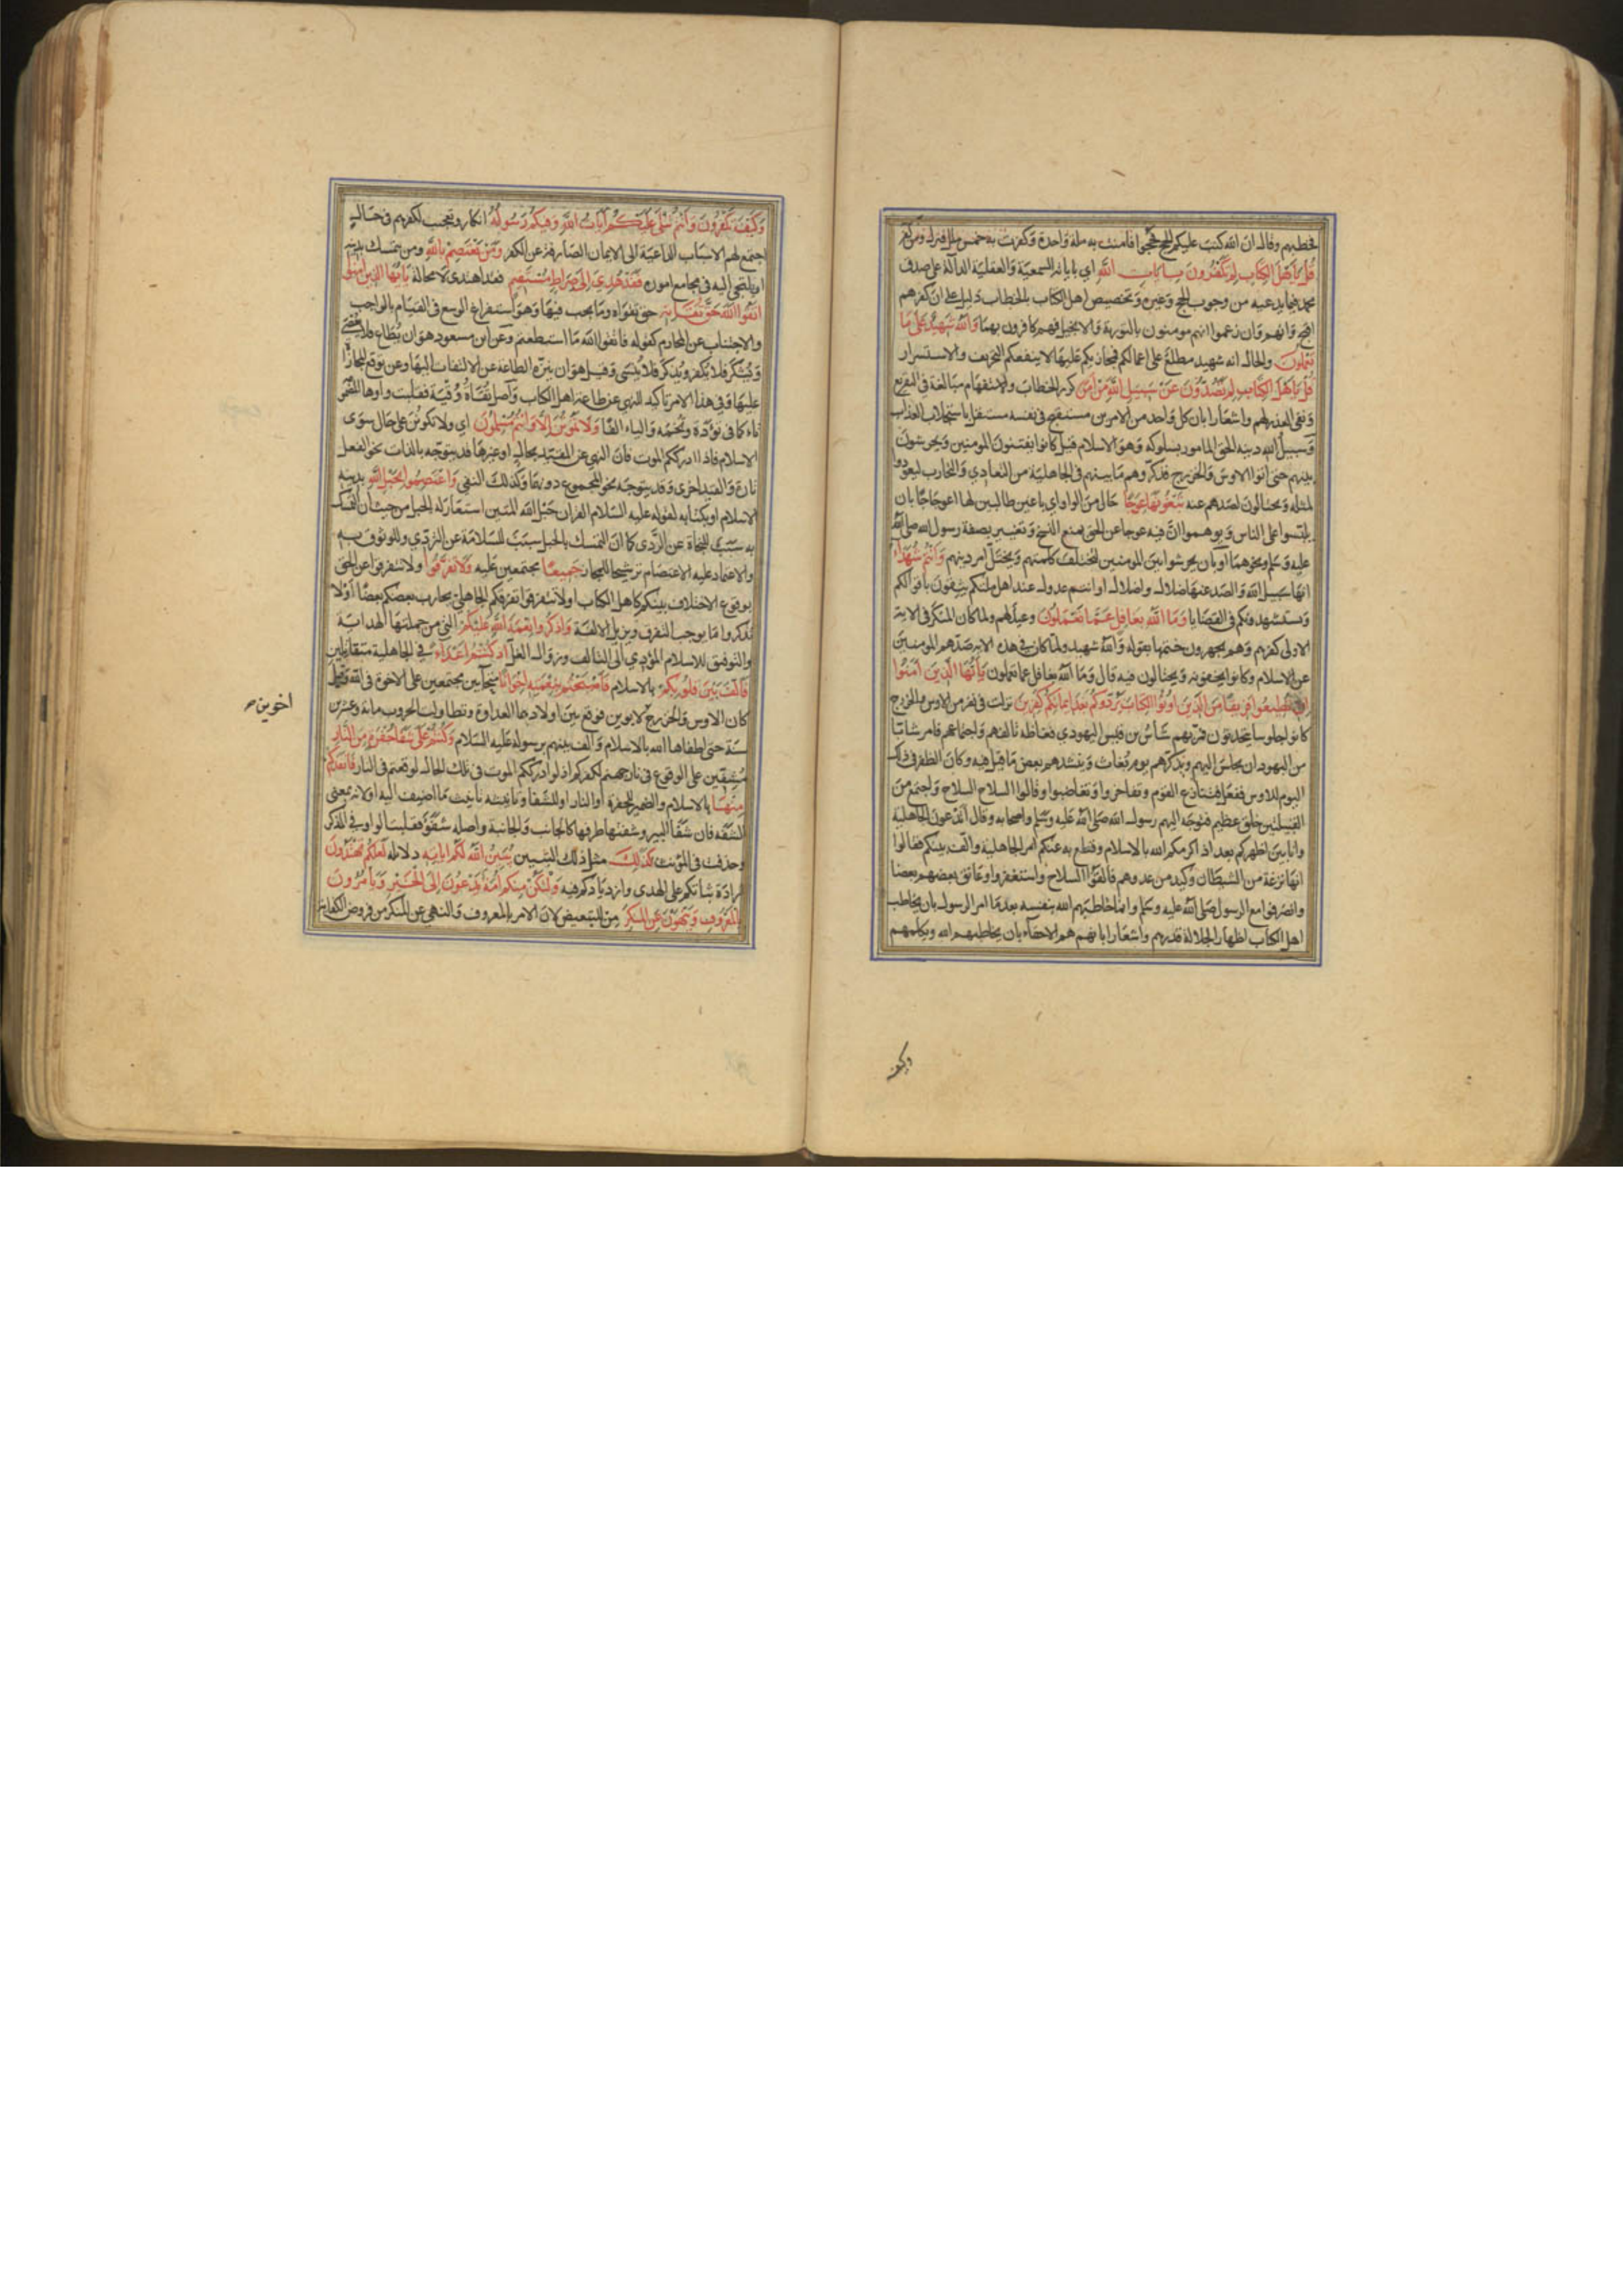 فخطبهم وقال ان الله كتب عليكم الحج فحجوا فامنت به ملة واحدة وكفرت به خمس ملل فنزل ومن كفر
قُلْ يَا اَهْلَ الْكِتَابِ لِمَ تَكْفُرُونَ بِاٰيَاتِ اللّٰهِ اي باياته السمعية والعقلية الدالة على صدق
محمد فيما يدعيه من وجوب الحج وغيره وتخصيص اهل الكتاب بالخطاب دليل على ان كفرهم
اقبح وانهم وان زعموا انهم مومنون بالتورية والانجيل فهم كافرون بهما وَاللّٰهُ شَهِيدٌ عَلٰى مَا
تَعْمَلُونَ والحال انه شهيد مطلع على اعمالكم فيجازيكم عليها لا ينفعكم التحريف والاستسرار
قُلْ يَا اَهْلَ الْكِتَابِ لِمَ تَصُدُّونَ عَنْ سَبِيلِ اللّٰهِ مَنْ اٰمَنَ كرر الخطاب والاستفهام مبالغة في التقريع
ونفى العذر لهم واشعارا بان كل واحد من الامرين مستقبح في نفسه مستقل باستجلاب العذاب
وسبيل الله دينه الحق المامور بسلوكه وهو الاسلام قيل كانوا يفتنون المومنين ويحرشون
بينهم حتى اتوا الاوس والخزرج فذكروهم ما بينهم في الجاهلية من التعادي والتحارب ليعودوا
لمثله ويحتالون لصدهم عنه تَبْغُونَهَا عِوَجًا حال من الواو اي باغين طالبين لها اعوجاجا بان
يلبسوا على الناس ويوهموا ان فيه عوجا عن الحق بمنع النسخ وتغيير بصفة رسول الله صلى الله
عليه وسلم ونحوهما او بان يحرشوا بين المومنين لتختلف كلمتهم ويختل امر دينهم وَاَنْتُمْ شُهَدَاءُ
انها سبيل الله والصد عنها ضلال واضلال او انتم عدول عند اهل ملتكم يثقون باقوالكم
ويستشهدونكم في القضايا وَمَا اللّٰهُ بِغَافِلٍ عَمَّا تَعْمَلُونَ وعيد لهم ولما كان المنكر في الاية
الاولى كفرهم وهم يجهرون ختمها بقوله والله شهيد ولما كان في هذه الاية صدهم المومنين
عن الاسلام وكانوا يخفونه ويحتالون فيه قال وما الله بغافل عما تعملون يَا اَيُّهَا الَّذِينَ اٰمَنُوا
اِنْ تُطِيعُوا فَرِيقًا مِنَ الَّذِينَ اُوتُوا الْكِتَابَ يَرُدُّوكُمْ بَعْدَ اِيمَانِكُمْ كَافِرِينَ نزلت في نفر من الاوس والخزرج
كانوا جلوسا يتحدثون فمر بهم شأس بن قيس اليهودي فغاظه تالفهم واجتماعهم فامر شابا
من اليهود ان يجلس اليهم ويذكرهم يوم بغاث وينشدهم بعض ما قيل فيه وكان الظفر في ذلك
اليوم للاوس ففعل فتنازع القوم وتفاخروا وتغاضبوا وقالوا السلاح السلاح واجتمع من
القبيلتين خلق عظيم فتوجه اليهم رسول الله صلى الله عليه وسلم واصحابه وقال اتدعون الجاهلية
وانا بين اظهركم بعد اذ اكرمكم الله بالاسلام وقطع به عنكم امر الجاهلية والف بينكم فقالوا
انها نزغة من الشيطان وكيد من عدوهم فالقوا السلاح واستغفروا وعانق بعضهم بعضا
وانصرفوا مع الرسول صلى الله عليه وسلم وانما خاطبهم الله بنفسه بعد ما امر الرسول بان يخاطب
اهل الكتاب اظهارا لجلالة قدرهم واشعارا بانهم هم الاحقاء بان يخاطبهم الله ويكلمهم
وكيف
وَكَيْفَ تَكْفُرُونَ وَاَنْتُمْ تُتْلٰى عَلَيْكُمْ اٰيَاتُ اللّٰهِ وَفِيكُمْ رَسُولُهُ انكار وتعجيب لكفرهم في حال
اجتمع لهم الاسباب الداعية الى الايمان الصارفة عن الكفر وَمَنْ يَعْتَصِمْ بِاللّٰهِ ومن يتمسك بدينه
او يلتجي اليه في مجامع اموره فَقَدْ هُدِيَ اِلٰى صِرَاطٍ مُسْتَقِيمٍ فقد اهتدى لا محالة يَا اَيُّهَا الَّذِينَ اٰمَنُوا
اتَّقُوا اللّٰهَ حَقَّ تُقَاتِهِ حق تقواه وما يجب فيها وهو استفراغ الوسع في القيام بالواجب
والاجتناب عن المحارم كقوله فاتقوا الله ما استطعتم وعن ابن مسعود هو ان يطاع فلا يعصى
ويشكر فلا يكفر ويذكر فلا ينسى وقيل هو ان ينزه الطاعة عن الالتفات اليها وعن توقع المجازاة
عليها وفي هذا الامر تاكيد للنهي عن طاعة اهل الكتاب واصل تقاة وقية فقلبت واوها المضمومة
تاء كما في تؤدة وتخمة والياء الفا وَلَا تَمُوتُنَّ اِلَّا وَاَنْتُمْ مُسْلِمُونَ اي ولا تكونن على حال سوى
الاسلام فاذا ادرككم الموت فان النهي عن المقيد بحال او غيرها قد يتوجه بالذات نحو الفعل
تارة والقيد اخرى وقد يتوجه نحو المجموع دونهما وكذلك النفي وَاعْتَصِمُوا بِحَبْلِ اللّٰهِ بدينه
الاسلام او بكتابه لقوله عليه السلام القران حبل الله المتين استعار له الحبل من حيث ان التمسك
به سبب للنجاة عن الردى كما ان التمسك بالحبل سبب للسلامة عن التردي وللوثوق به
والاعتماد عليه الاعتصام ترشيحا للمجاز جَمِيعًا مجتمعين عليه وَلَا تَفَرَّقُوا ولا تتفرقوا عن الحق
بوقوع الاختلاف بينكم كاهل الكتاب او لا تتفرقوا تفرقكم الجاهلي يحارب بعضكم بعضا او لا
تذكروا ما يوجب التفرق ويزيل الالفة وَاذْكُرُوا نِعْمَةَ اللّٰهِ عَلَيْكُمْ التي من جملتها الهداية
والتوفيق للاسلام المؤدي الى التالف وزوال الغل اِذْ كُنْتُمْ اَعْدَاءً في الجاهلية متقاتلين
فَاَلَّفَ بَيْنَ قُلُوبِكُمْ بالاسلام فَاَصْبَحْتُمْ بِنِعْمَتِهِ اِخْوَانًا متحابين مجتمعين على الاخوة في الله وقيل
كان الاوس والخزرج لابوين فوقع بين اولادهما العداوة وتطاولت الحروب مائة وعشرين
اخوين صح
سنة حتى اطفاها الله بالاسلام والف بينهم برسوله عليه السلام وَكُنْتُمْ عَلٰى شَفَا حُفْرَةٍ مِنَ النَّارِ
مشفين على الوقوع في نار جهنم لكفركم اذ لو ادرككم الموت في تلك الحال لوقعتم في النار فَاَنْقَذَكُمْ
مِنْهَا بالاسلام والضمير للحفرة او النار او للشفا وتانيثه تانيث ما اضيف اليه او لانه بمعنى
الشفة فان شفا البير وشفتها طرفها كالجانب والجانبة واصله شفو فقلبت الواو في المذكر
وحذفت في المؤنث كَذٰلِكَ مثل ذلك التبيين يُبَيِّنُ اللّٰهُ لَكُمْ اٰيَاتِهِ دلائله لَعَلَّكُمْ تَهْتَدُونَ
ارادة ثباتكم على الهدى وازديادكم فيه وَلْتَكُنْ مِنْكُمْ اُمَّةٌ يَدْعُونَ اِلَى الْخَيْرِ وَيَاْمُرُونَ
بِالْمَعْرُوفِ وَيَنْهَوْنَ عَنِ الْمُنْكَرِ من للتبعيض لان الامر بالمعروف والنهي عن المنكر من فروض الكفاية